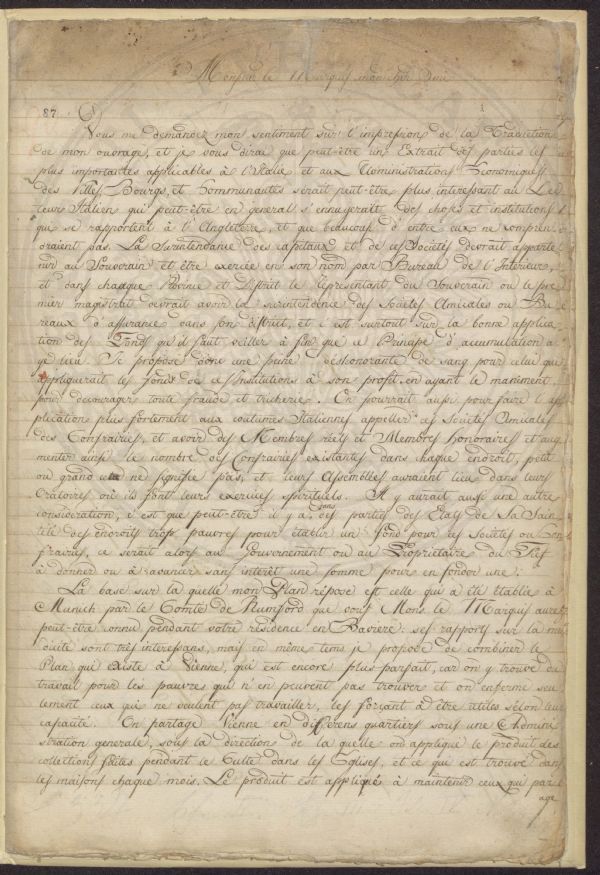 Monsieur le Marquis mon cher Ami
87.
Vous me demandez mon sentiment sur l'impression de la Traduction
de mon ouvrage, et je vous dirai que peut-être un Extrait des parties les
plus importantes applicables à l'Italie et aux Administrations Economiques
des Villes, Bourgs, et Communautés serait peut-être plus interessant au Lec
teur Italien qui peut-être en general s'ennuyerait des choses et institutions
que se rapportent à l'Angleterre, et que beaucoup d'entre eux ne compren
draient pas. La Surintendance des capitaux et de ces Societés devrait apparte
nir au Souverain et être exercée en son nom par Bureau de l'Interieur,
et dans chaque Province et District le Représentant du Souverain ou le pre
mier magistrat devrait avoir la surintendence des Societés Amicales ou Bu
reaux d'assurance dans son district, et c'est surtout sur la bonne applica
tion des Fonds qu'il faut veiller à fin que ce Principe d'accumulation a
ye lieu. Je propose donc une peine deshonorante de sang pour celui qui
appliquerait les fonds de ces Institutions à son profit en ayant le maniment,
pour decourager toute fraude et tricherie. On pourrait aussi pour faire l'ap
plication plus fortement aux coutumes Italiennes appeller ces Societés Amicales
des Confrairies, et avoir des Membres réels et Membres honoraires et aug
menter ainsi le nombre des Confrairies existantes dans chaque endroit, petit
ou grand ne signifie pas, et leurs Assemblées auraient lieu dans leurs
Oratoires où ils font leurs exercices spirituels. Il y aurait aussi une autre
consideration, c'est que peut-être il y a, dans des parties des Etats de Sa Sain
teté des endroits trop pauvres pour établir un fond pour ces Societés ou Con
frairies, ce serait alors au Gouvernement ou au Propriétaire du Fief
à donner ou à avancer sans interêt une somme pour en fonder une.
La base sur la quelle mon Plan répose est celle qui a été établie à
Munich par le Comte de Rumford que vous Mons. le Marquis aurez
peut-être connu pendant votre résidence en Bavière: ses rapports sur la men
dicité sont très interessans, mais en même tems je propose de combiner le
Plan qui existe à Vienne, qui est encore plus parfait, car on y trouve du
travail pour les pauvres qui n'en peuvent pas trouver et on enferme seu
lement ceux qui ne veulent pas travailler, les forçant à être utiles selon leur
capacité. On partage Vienne en differens quartiers sous une Admini
stration generale, sous la direction de la quelle on applique le produit des
collections faites pendant le Culte dans les Eglises, et ce qui est trouvé dans
les maisons chaque mois. Le produit est appliqué à maintenir ceux qui par l'
age